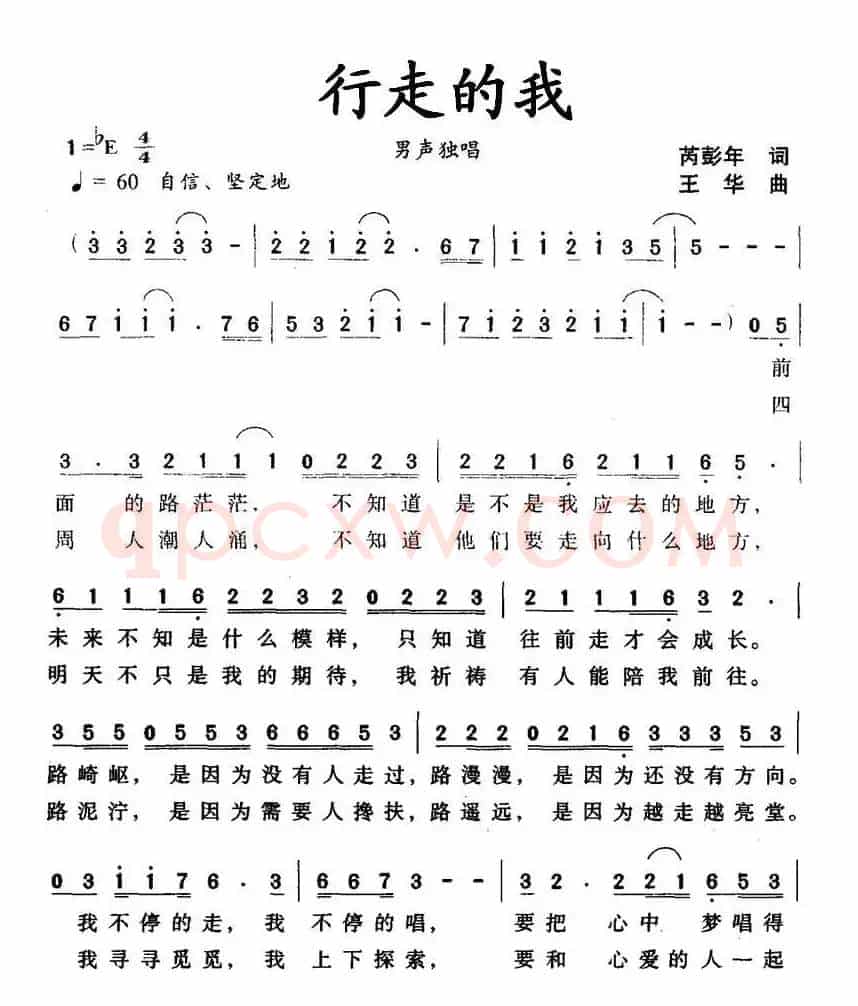 行走的我
1=♭E 4/4 男声独唱 芮彭年 词
♩= 60 自信、坚定地 王 华 曲
( 3 3 2 3 3 - | 2 2 1 2 2 . 6 7 | 1 1 2 1 3 5 | 5 - - - |
6 7 1 1 1 . 7 6 | 5 3 2 1 1 - | 7 1 2 3 2 1 1 | 1 - - ) 0 5 |
前
四
3 . 3 2 1 1 1 1 0 2 2 3 | 2 2 1 6 2 1 1 6 5 . |
面 的路茫茫, 不知道 是不是我应去的地方,
周 人潮人涌, 不知道 他们要走向什么地方,
qpcxw.com
6 1 1 1 6 2 2 3 2 0 2 2 3 | 2 1 1 1 6 3 2 . |
未来不知是什么模样, 只知道 往前走才会成长。
明天不只是我的期待, 我祈祷 有人能陪我前往。
3 5 5 0 5 5 3 6 6 6 5 3 | 2 2 2 0 2 1 6 3 3 3 5 3 |
路崎岖, 是因为没有人走过, 路漫漫, 是因为还没有方向。
路泥泞, 是因为需要人搀扶, 路遥远, 是因为越走越亮堂。
0 3 1 1 7 6 . 3 | 6 6 7 3 - - | 3 2 . 2 2 1 6 5 3 |
我不停的走, 我 不停的唱, 要把 心中 梦唱得
我寻寻觅觅, 我 上下探索, 要和 心爱的人一起